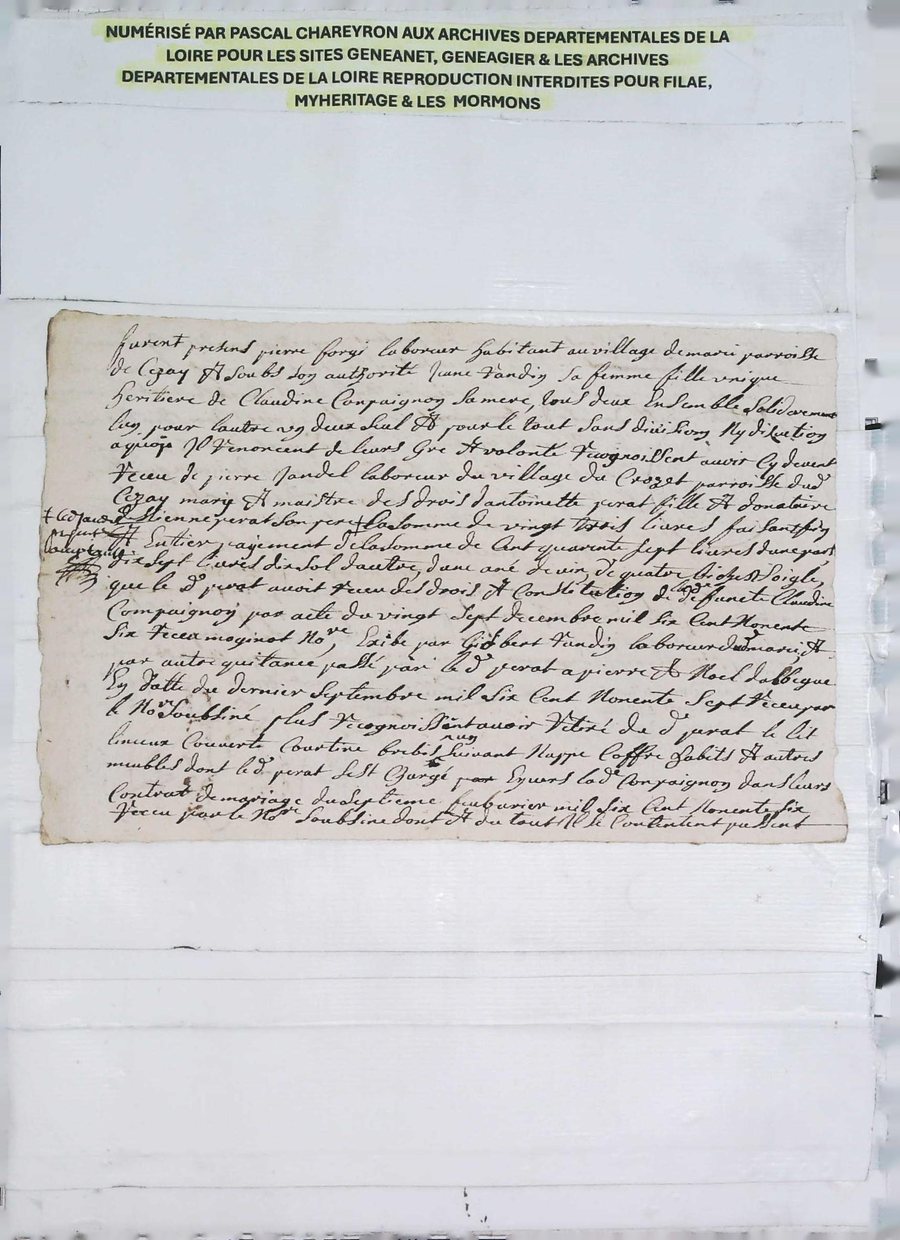 NUMÉRISÉ PAR PASCAL CHAREYRON AUX ARCHIVES DEPARTEMENTALES DE LA
LOIRE POUR LES SITES GENEANET, GENEAGIER & LES ARCHIVES
DEPARTEMENTALES DE LA LOIRE REPRODUCTION INTERDITES POUR FILAE,
MYHERITAGE & LES MORMONS
furent presens pierre forge laboreur habitant au village de marie parroisse
de Cezay Et soubs son authorité Jane fandin sa femme fille unique
heritiere de Claudine Conpaignon sa mere, tous deux Ensemble solidairement
lun pour lautre un deux seul Et pour le tout sans division Ny
a quoy Il renoncent de leurs Gre Et volonté recognoissent avoir Cy devent
receu de pierre Jandel laboreur du village du Crozet parroisse dud
Cezay mary Et maistre des drois dantoinette perat fille Et donataire
destienne perat son pere la somme de vingt trois livres faisant fin
Et Entier payement de la somme de Cent quarente sept livres dune part
dix sept livres dix sol dautre, dune ane de vin, de quatre bichest soigle,
que le dt perat avoit receu des drois Et Constitution de la de functe Claudine
Compaignon par acte du vingt sept decembre mil six Cent Nonente
six receu moginot Nore, Exibe par fandin laboreur marie, Et
par autre quitance passé par le dt perat a pierre Et Noel dalbegue
En datte du dernier septembre mil six Cent Nonente sept receu par
le Nore soubsiné plus recognoissent avoir retiré du dt perat le lit
linceux Couverte Courtine brebis suivant Nappe Coffre habits Et autres
meubles dont le dt perat sest Chargé Envers la de Conpaignon dans leurs
Contrat de mariage du septieme feubvrier mil six Cent Nonente six
receu par le Nore soubsine dont Et du tout Il se Contentent passent